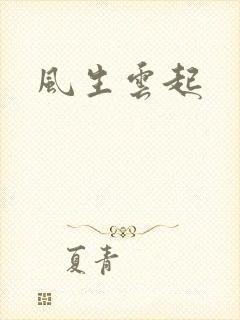 風生雲起
夏青